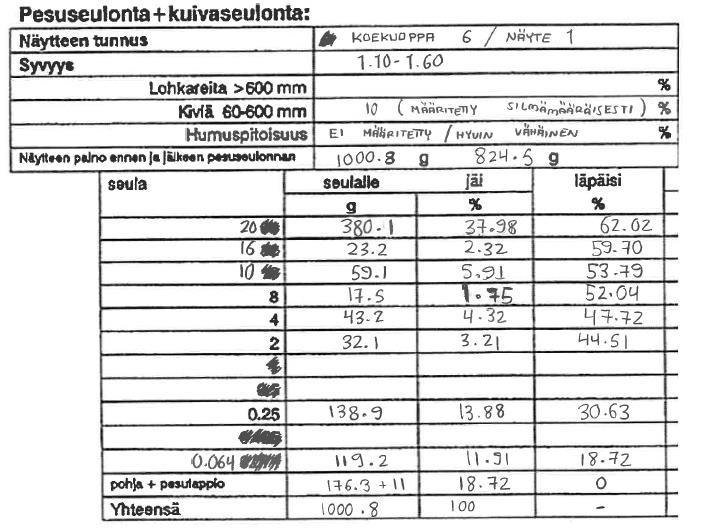 Pesuseulonta+kuivaseulonta:
Näytteen tunnus KOEKUOPPA 6 / NÄYTE 1
Syvyys 1.10-1.60
Lohkareita >600 mm %
Kiviä 60-600 mm 10 (MÄÄRITETTY SILMÄMÄÄRÄISESTI) %
Humuspitoisuus EI MÄÄRITETTY / HYVIN VÄHÄINEN %
Näytteen paino ennen ja jälkeen pesuseulonnan 1000.8 g 824.5 g
seula seulalle jäi läpäisi
g % %
20 380.1 37.98 62.02
16 23.2 2.32 59.70
10 59.1 5.91 53.79
8 17.5 1.75 52.04
4 43.2 4.32 47.72
2 32.1 3.21 44.51
0.25 138.9 13.88 30.63
0.064 119.2 11.91 18.72
pohja + pesutappio 176.3 +11 18.72 0
Yhteensä 1000.8 100 -